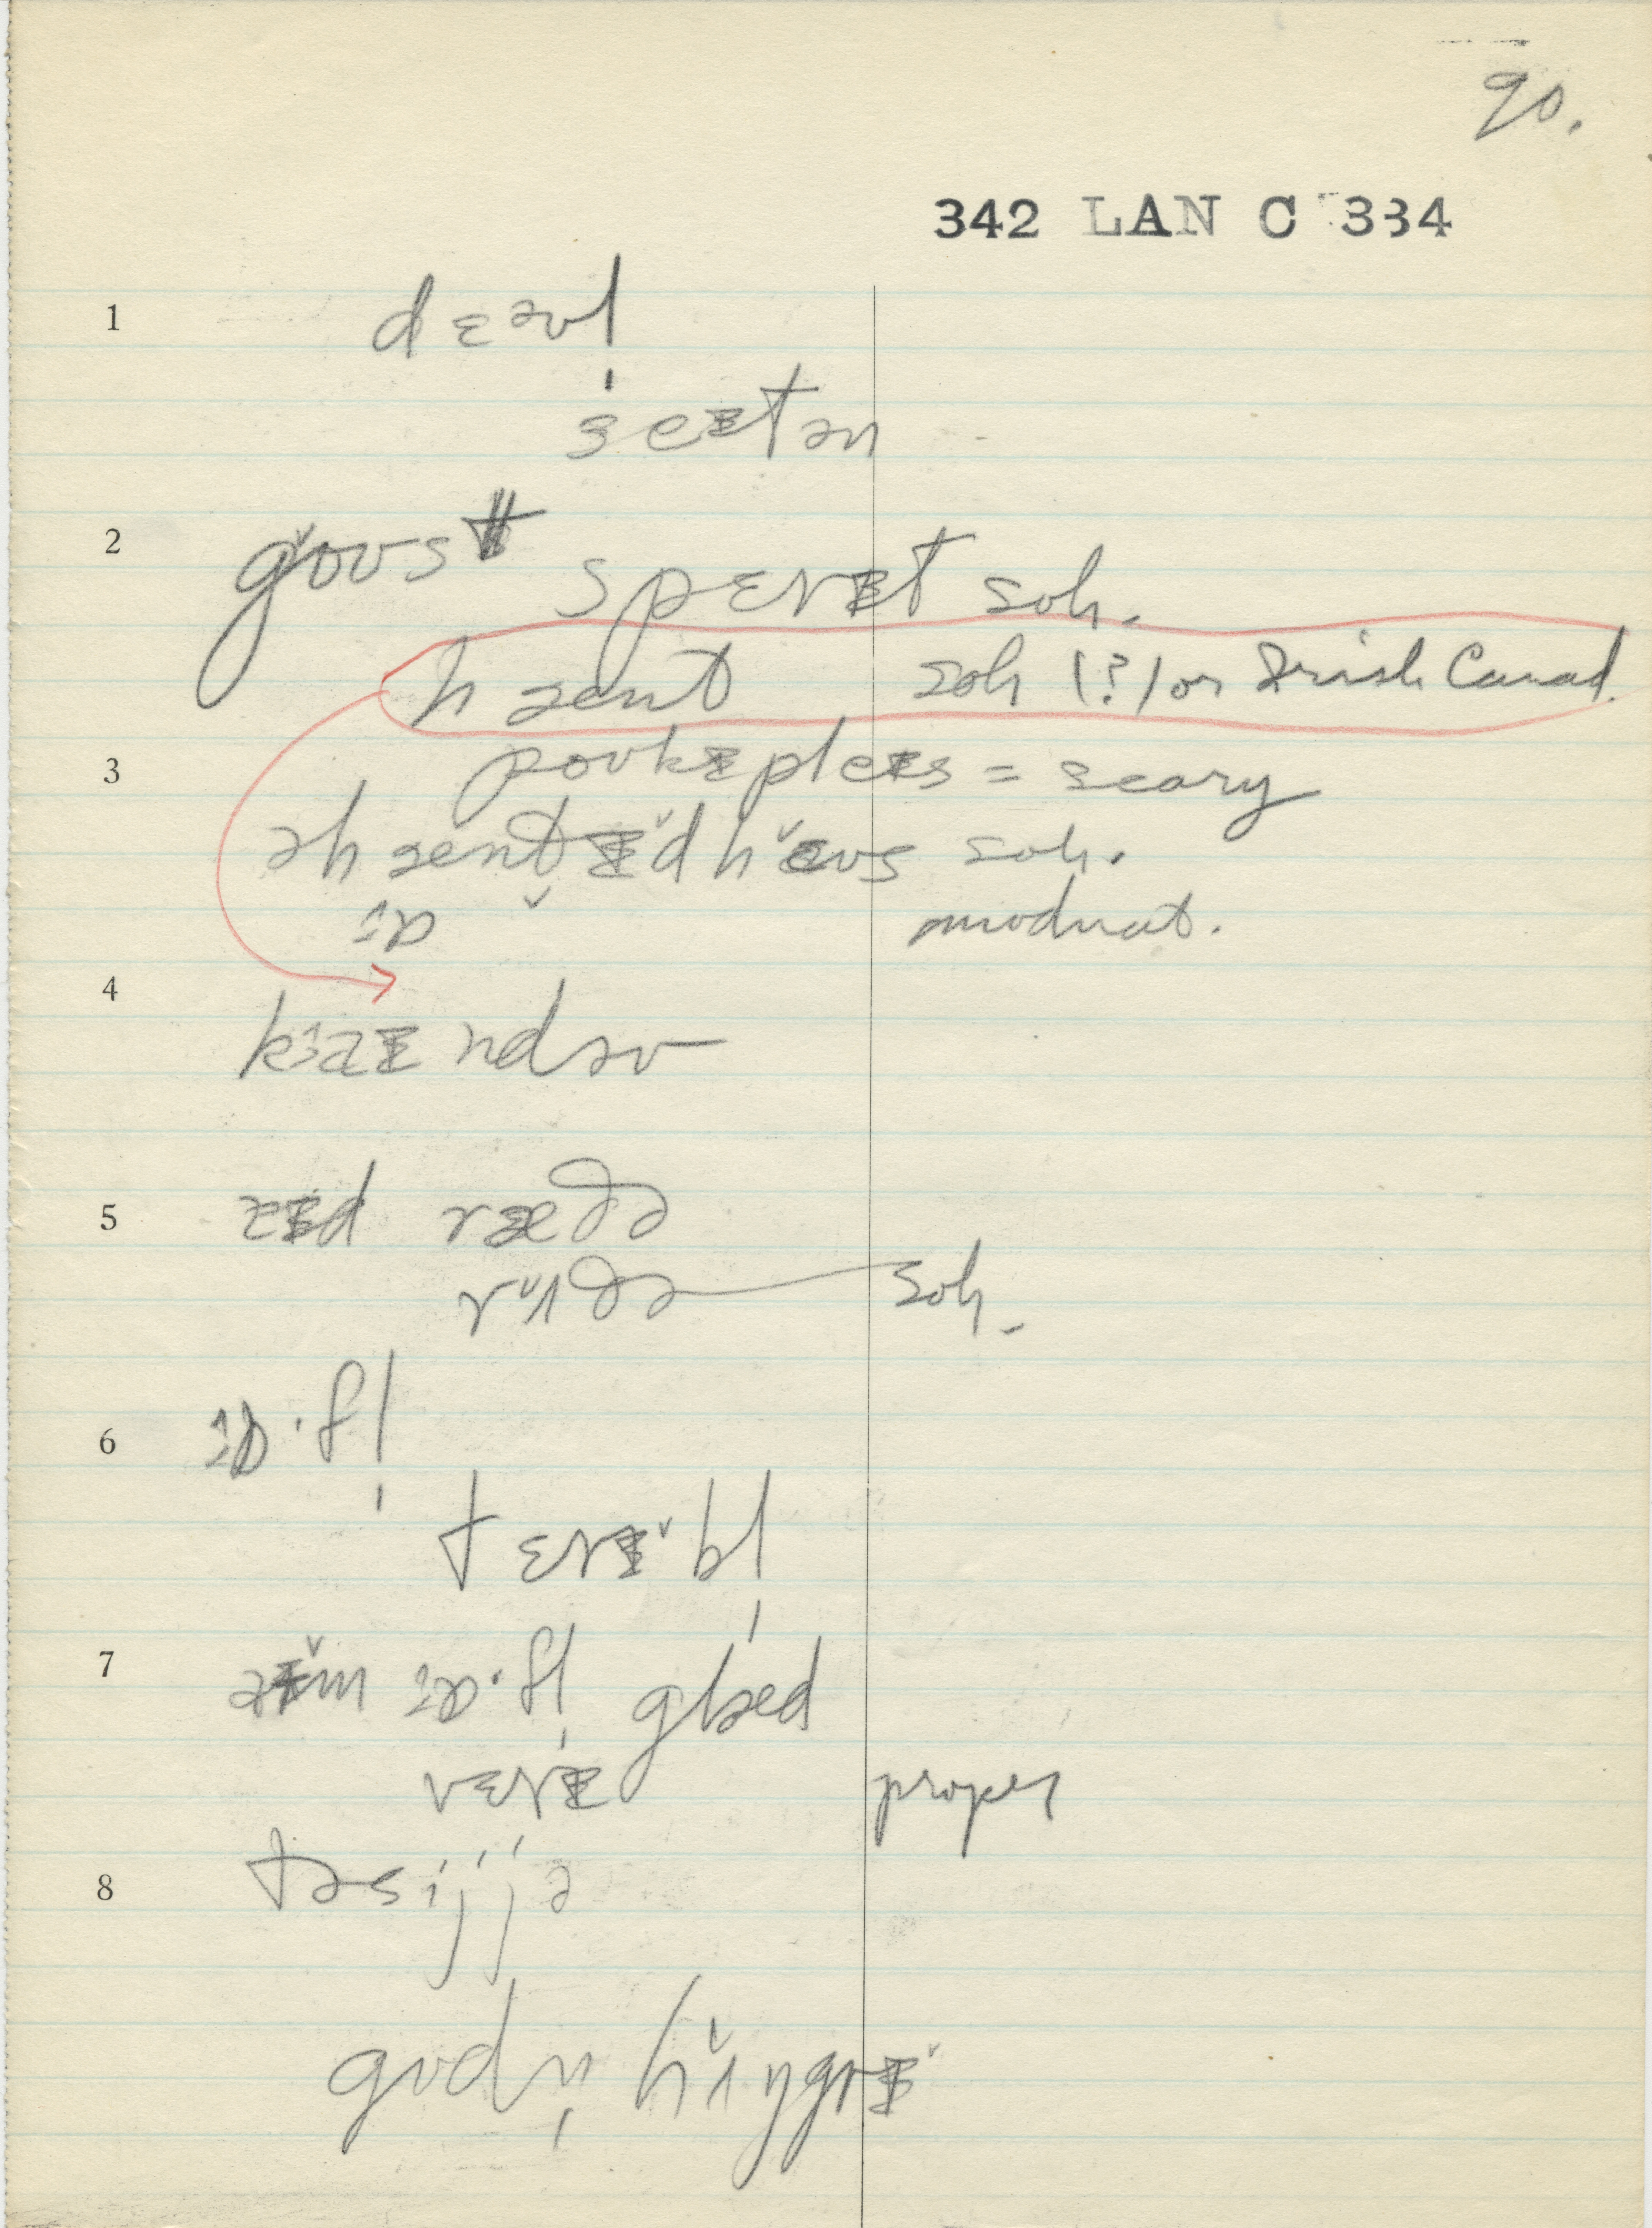 90.
342 LAN C 334
1 dɛəvl̩
seɪtən
2 gǒʊst
spɛrɪt soh.
hɔent soh (?) or Irish Canad.
3 poʊkɪ pleɪs = scary
əhɔentɪ̌d hæ̌ʊs soh.
ɒ
modnat.
4 kaɪndəv
5 aɪd ræðə
rʌ̌ðə soh.
6 ɒ·fl̩
tɛrɪ̌·bl̩
7 aɪ̌m ɒ·fl̩ glæd
vɛrɪ proper
8 təsijjə
gʊdn̩ hʌ̌ŋgrɪ̌